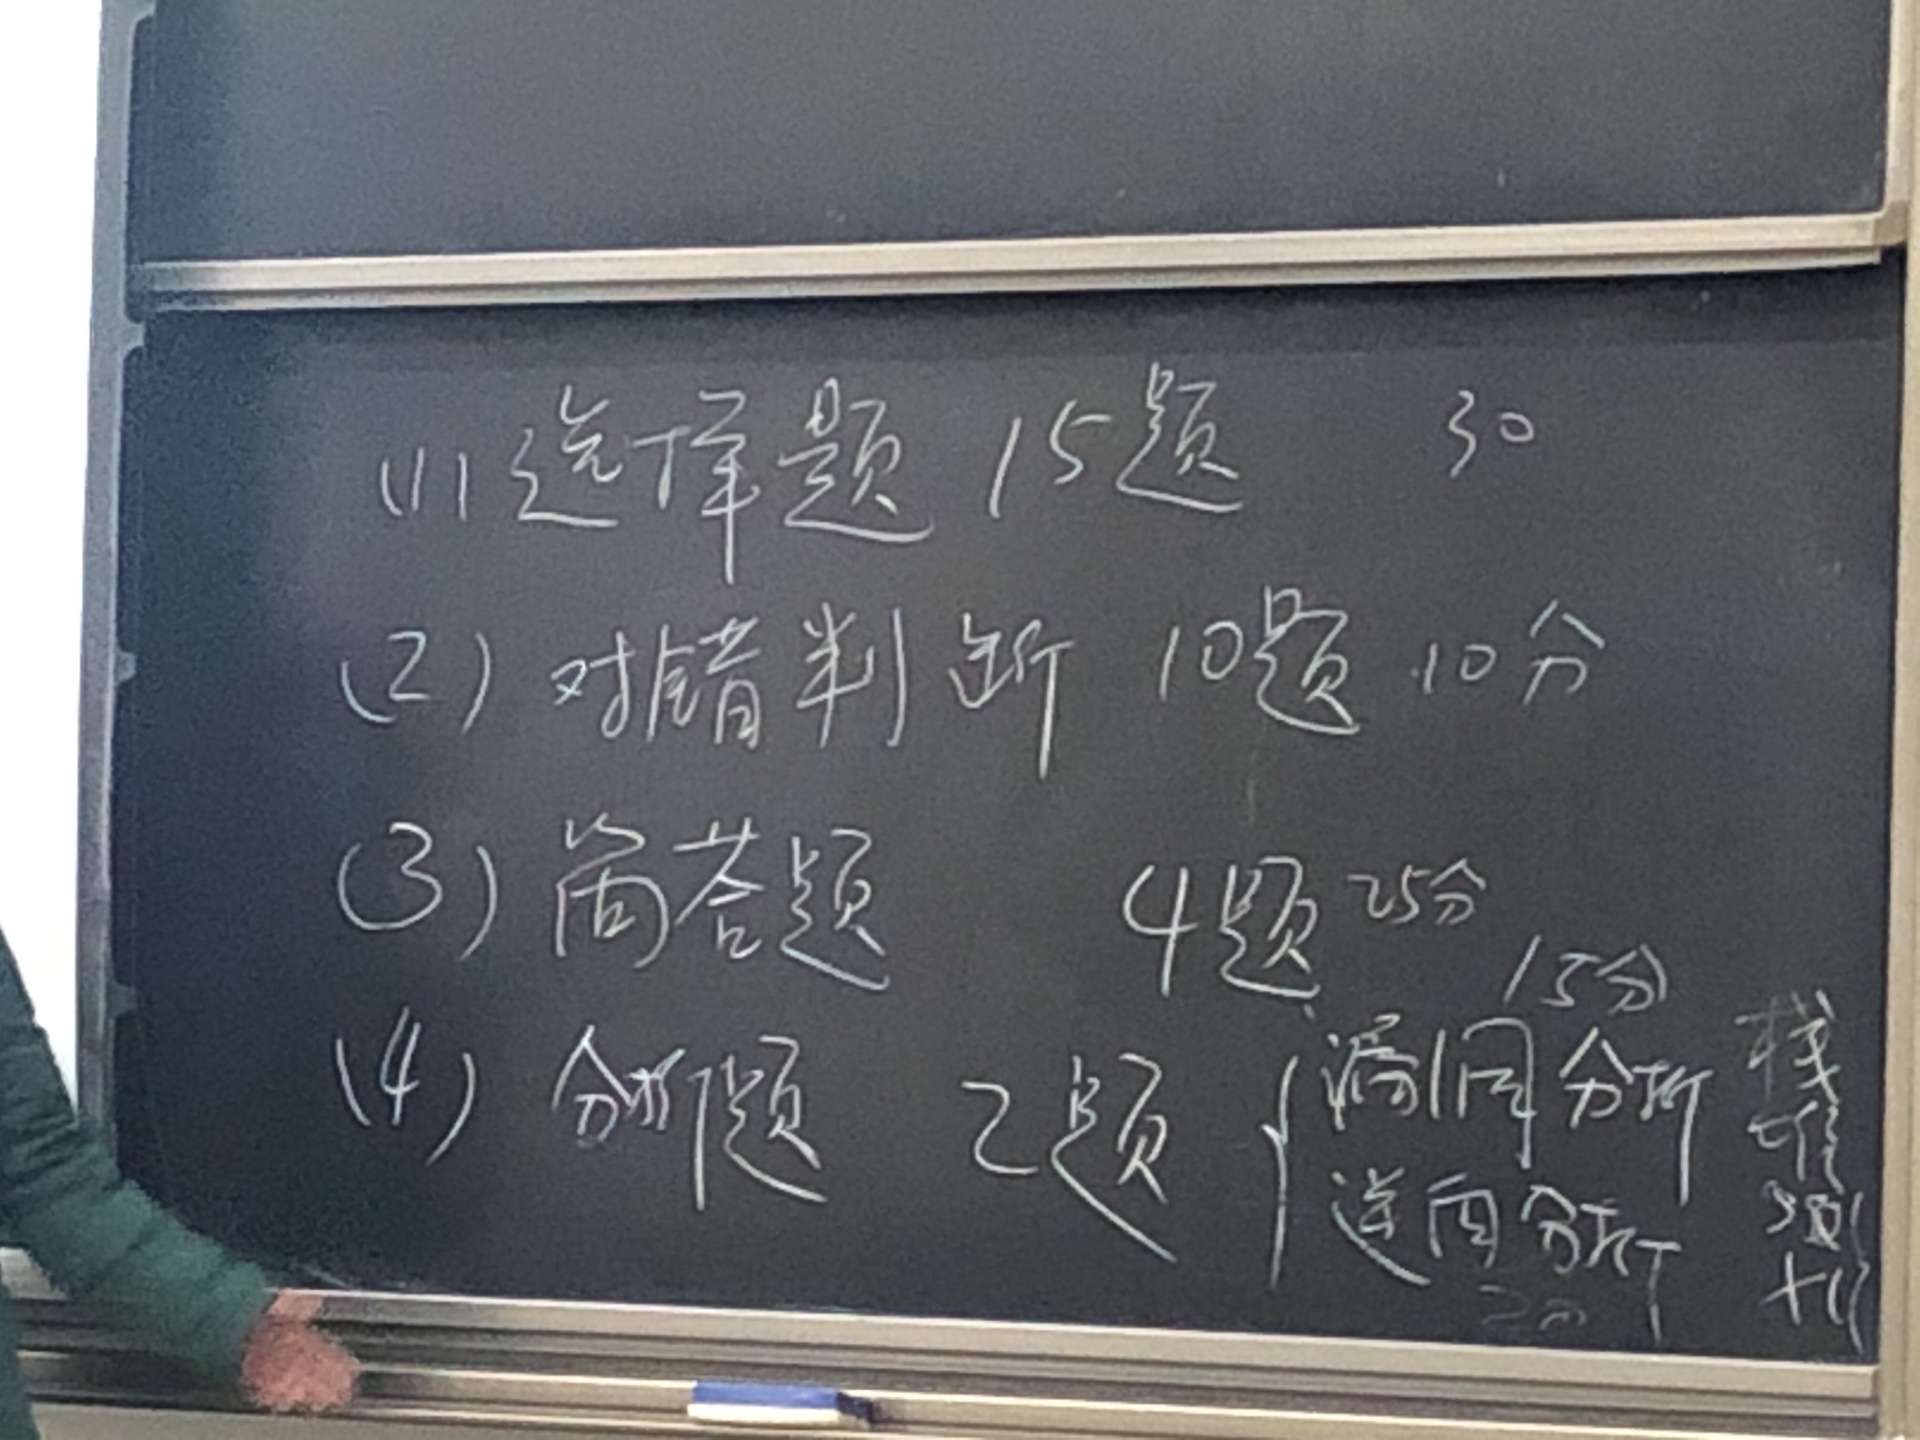 (1) 选择题 15题 30
(2) 对错判断 10题 10分
(3) 简答题 4题 25分
(4) 分析题 2题
15分
漏洞分析
逆向分析
20
栈
堆